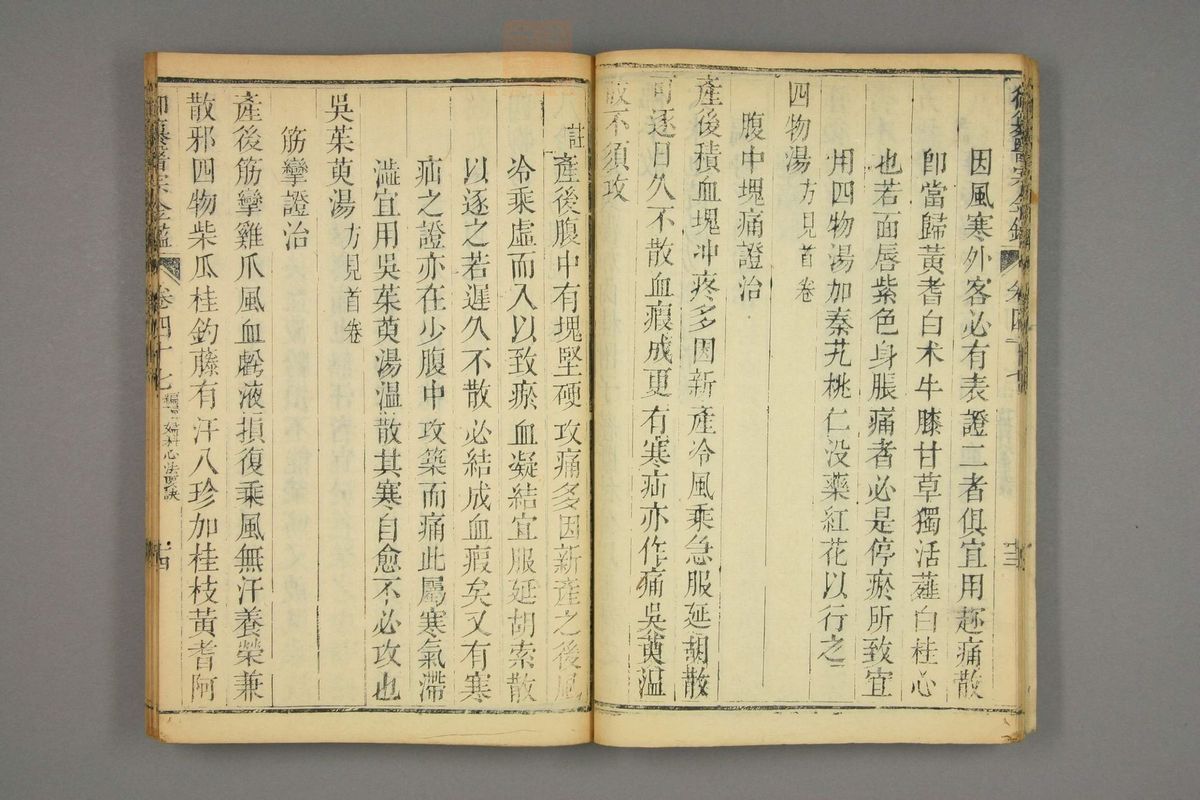 御纂醫宗金鑑 卷四十七 十三
因風寒外客必有表證二者俱宜用趂痛散
卽當歸黃耆白术牛膝甘草獨活薤白桂心
也若面唇紫色身脹痛者必是停瘀所致宜
用四物湯加秦艽桃仁没藥紅花以行之
四物湯 方見首卷
腹中塊痛證治
產後積血塊冲疼多因新產冷風乘急服延胡散
可逐日久不散血瘕成更有寒疝亦作痛吳茰温
散不須攻
註 產後腹中有塊堅硬攻痛多因新產之後風
冷乘虛而入以致瘀血凝結宜服延胡索散
以逐之若遲久不散必結成血瘕矣又有寒
疝之證亦在少腹中攻築而痛此屬寒氣滯
澁宜用吳茱茰湯温散其寒自愈不必攻也
吳茱茰湯 方見首卷
筋攣證治
產後筋攣雞爪風血虧液損復乘風無汗養榮兼
散邪四物柴瓜桂鈎藤有汗八珍加桂枝黃耆阿
御纂醫宗金鑑 卷四十七 編輯婦科心法要訣 十四